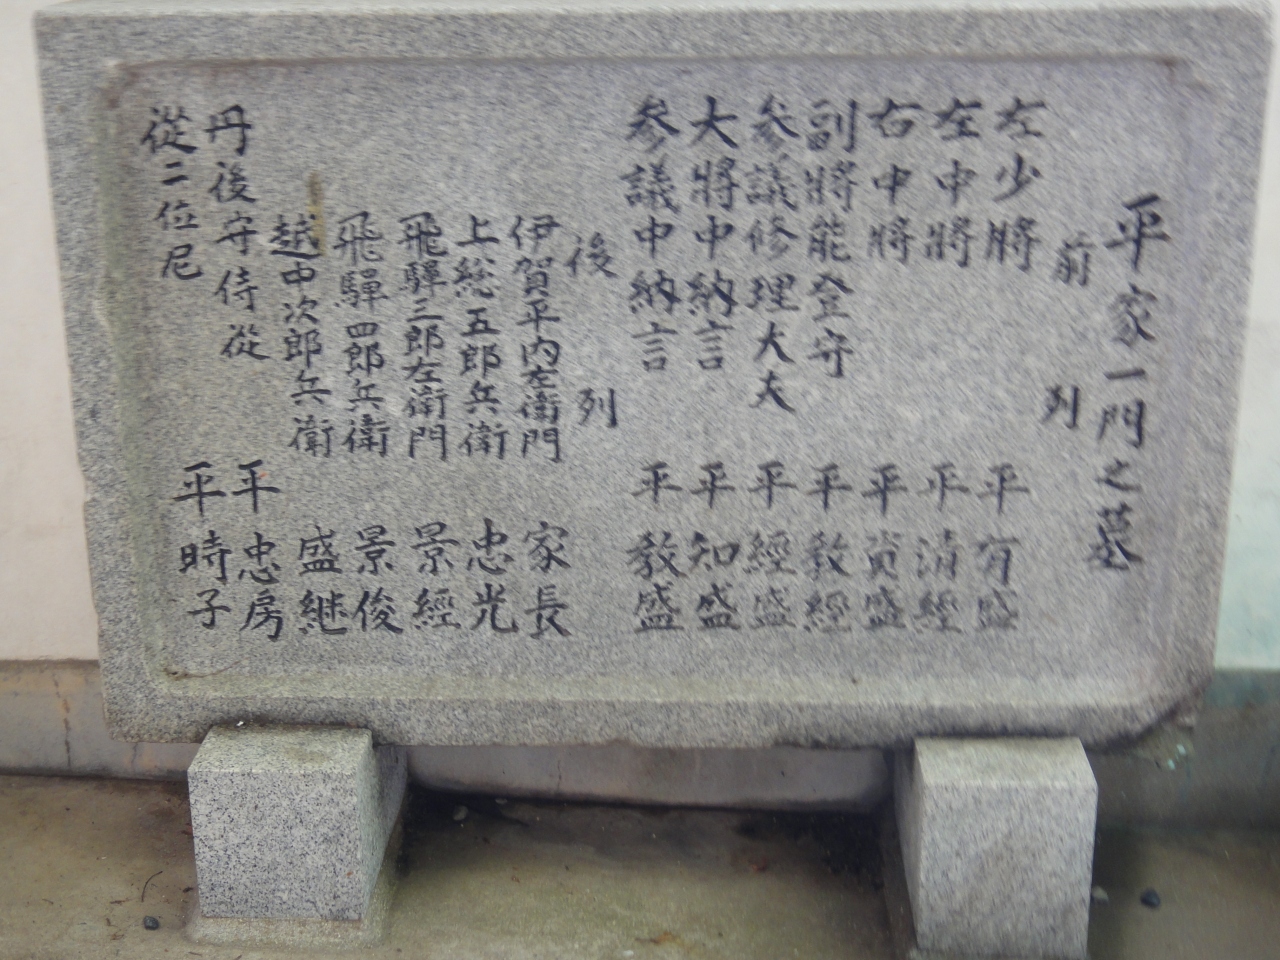 平家一門之墓
前列
左少將 平有盛
左中將 平清經
右中將 平資盛
副將能登守 平敎經
參議修理大夫 平經盛
大將中納言 平知盛
參議中納言 平敎盛
後列
伊賀平内左衛門 家長
上総五郎兵衛 忠光
飛驒三郎左衛門 景經
飛驒四郎兵衛 景俊
越中次郎兵衛 盛継
丹後守侍從 平忠房
從二位尼 平時子